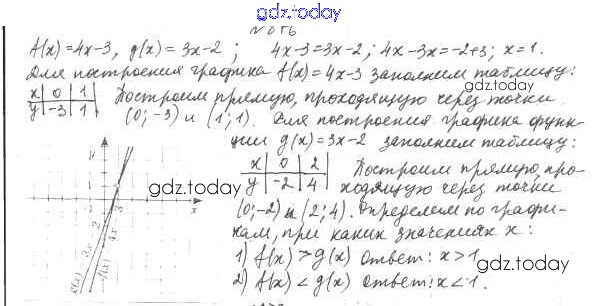 gdz.today
№ 056
f(x)=4x-3, g(x)=3x-2; 4x-3=3x-2; 4x-3x=-2+3; x=1.
Для построения графика f(x)=4x-3 заполним таблицу:
x 0 1
y -3 1
Построим прямую, проходящую через точки
(0;-3) и (1;1). Для построения графика функ-
ции g(x)=3x-2 заполним таблицу:
x 0 2
y -2 4
Построим прямую, про-
ходящую через точки
(0;-2) и (2;4). Определим по графи-
кам, при каких значениях x:
1) f(x)>g(x) ответ: x>1
2) f(x)<g(x) ответ: x<1.
y
x
3
2
g(x) 3x-2
f(x) 4x-3
gdz.today
gdz.today
gdz.today
gdz.today